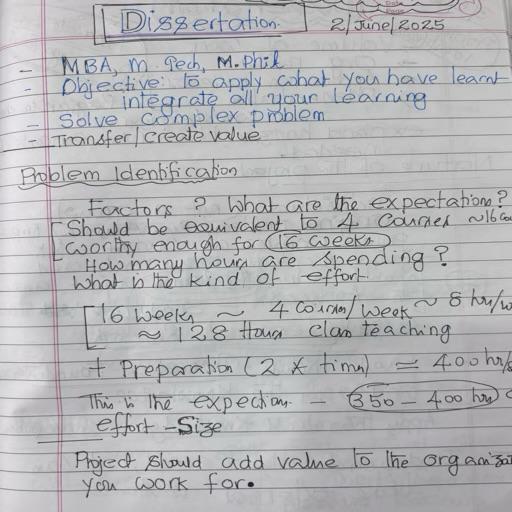 Dissertation.
2/June/2025
- MBA, M. Tech, M. Phil
- Objective: to apply what you have learnt
integrate all your learning
- Solve complex problem
- Transfer/create value
Problem Identification
Factors ? What are the expectation?
Should be equivalent to 4 Courses ~16
worthy enough for 16 weeks
How many hours are spending ?
What is the kind of effort
16 weeks ~ 4 Courses/week ~ 8 hr/w
≈ 128 Hour class teaching
+ Preparation (2 * time) = 400 hr/
This is the expection - 350 - 400 hr
effort - Size
Project should add value to the organiza
you work for.